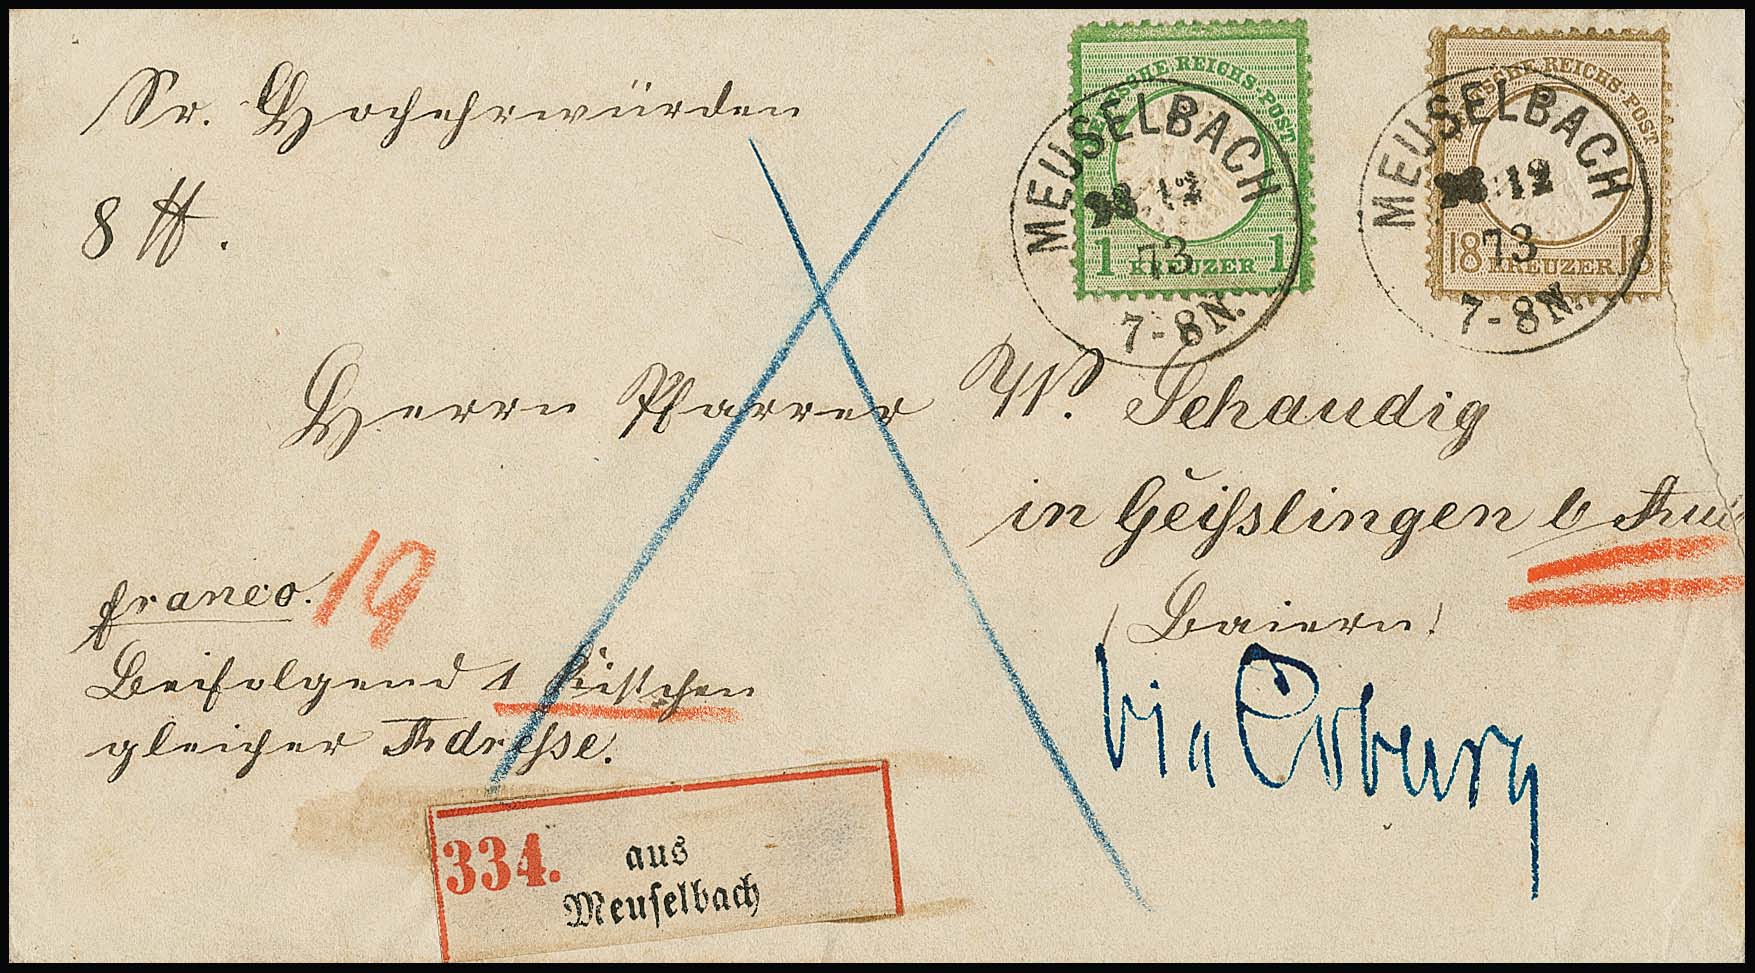 DEUTSCHE REICHS-POST
1 KREUZER 1
MEUSELBACH
12
73
7-8N.
DEUTSCHE REICHS-POST
18 KREUZER 18
MEUSELBACH
12
73
7-8N.
Sr. Hochehrwürden
8 ℔.
Herrn Pfarrer W. Schaudig
in Geißlingen b
Baiern!
franco. 19
Beifolgend 1 Kistchen
gleicher Adresse.
via
334. aus
Meuſelbach